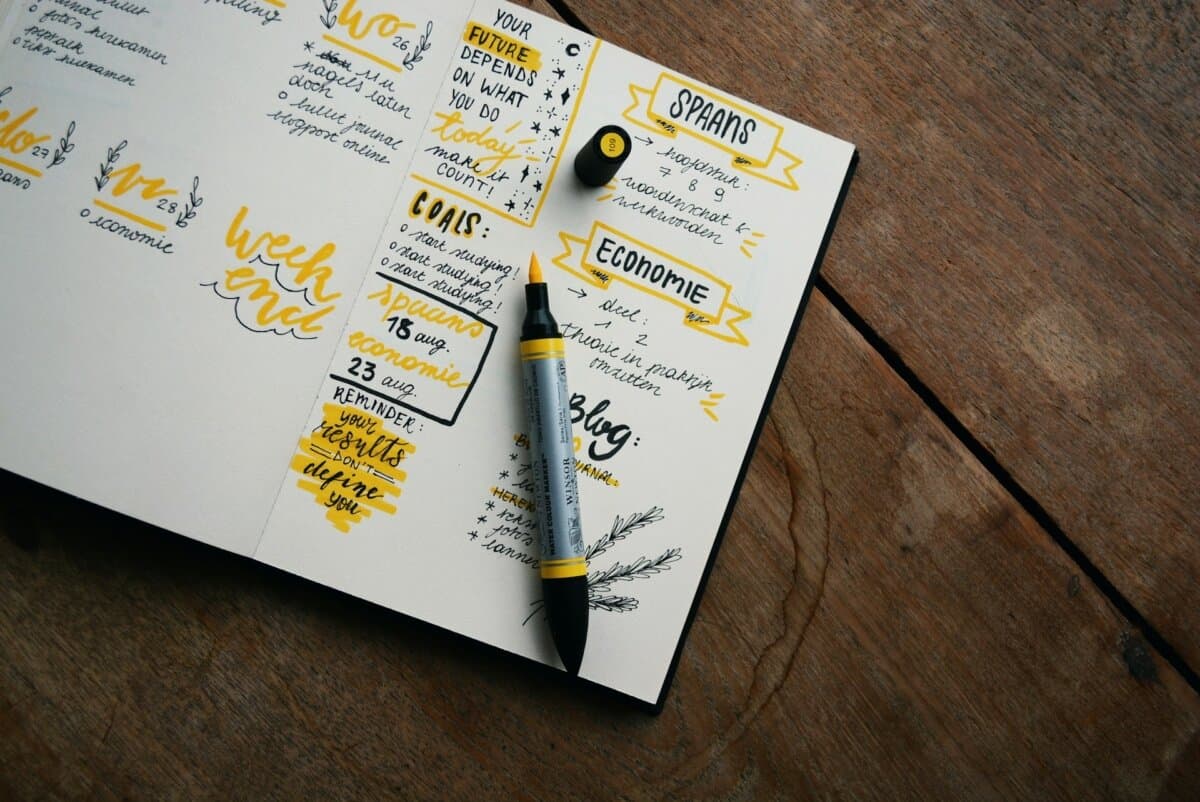 foto's herexamen
herexamen
wo 26
* 11 u
nagels laten
doen
o bullet journal
blogpost online
do 27
vr 28
o economie
Week
end
YOUR
FUTURE
DEPENDS
ON WHAT
YOU DO
today
make it
COUNT!
GOALS:
o start studying!
o start studying!
o start studying!
spaans
18 aug.
economie
23 aug.
REMINDER:
your
results
DON'T
define
you
SPAANS
→ hoofdstuk:
7 8 9
woordenschat &
werkwoorden
ECONOMIE
→ deel:
1 2
theorie in praktijk
omzetten
Blog:
109
WINSOR
WATER COLOUR MARKER